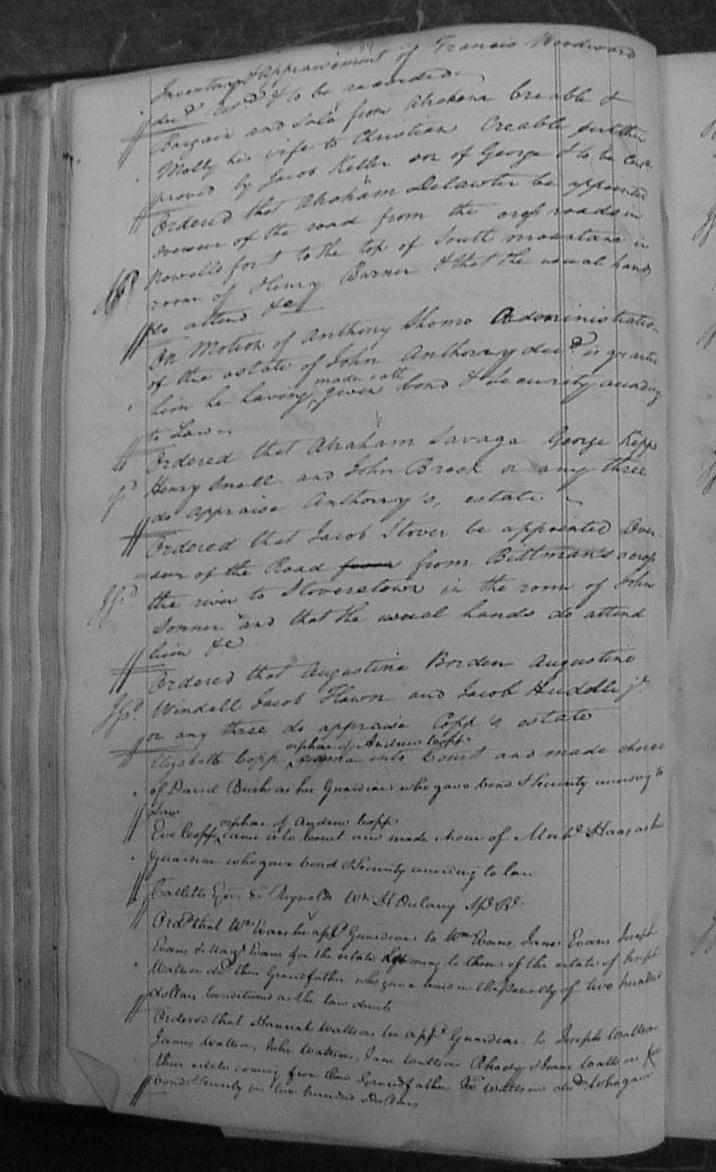 Inventory & Appraisement of Francis Woodward
decd retd & to be recorded
Bargain and Sale from Abraham Creable &
Molly his wife to Christian Creable further
proved by Jacob Keller son of George & to be
Ordered that Abraham Delawter be appointed
overseer of the road from the cross roads in
Powells fort to the top of South mountain in
room of Henry Barner & that the usual hands
do attend &c
On Motion of Anthony Shomo Administration
of the estate of John Anthony decd is granted
him he having made oath given bond & Security according
to Law
Ordered that Abraham Savage George Kipp
Henry Snell and John Brock or any three
do appraise Anthony's estate
Ordered that Jacob Stover be appointed Over-
seer of the Road from Bittman's across
the river to Stoverstown in the room of John
Sonner and that the usual hands do attend
him &c
Ordered that Augustine Borden Augustine
Windell Jacob Hawn and Jacob Huddle jr
or any three do appraise Copp's estate
Elizabeth Copp orphan of Andrew Copp came into Court and made choice
of David Bush as her Guardian who gave bond & Security according to
Law
Eve Copp orphan of Andrew Copp came into Court and made choice of Haas as her
Guardian who gave bond & Security according to law
Reynolds Wm H Dulany
Ordd that Wm Evans be appd Guardian to Wm Evans, James Evans Joseph
Evans & Evans for the estate coming to them of the estate of Joseph
Watson decd their Grandfather who gave bond in the penalty of two hundred
dollars Conditioned as the law directs
Ordered that Hannah Watson be appd Guardian to Joseph Watson
James Watson, John Watson, Jane Watson & Isaac Watson for
their estate coming from their Grandfather Jos Watson decd. Who gave
bond & Security in two hundred dollars